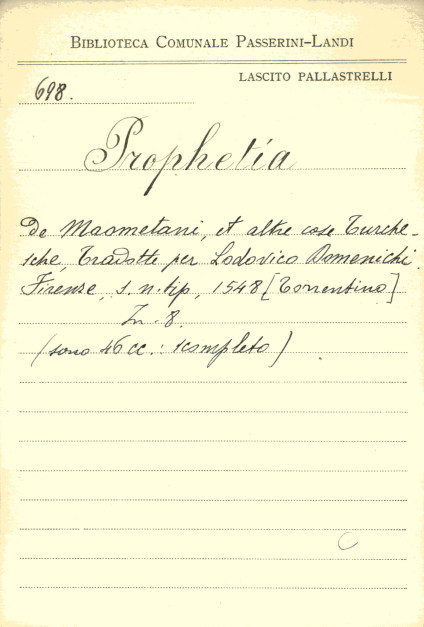 BIBLIOTECA COMUNALE PASSERINI-LANDI
LASCITO PALLASTRELLI
698.
Prophetia
De Maometani, et altre cose Turche-
sche, Tradotte per Lodovico Domenichi.
Firenze, s. n. tip, 1548 [Torrentino]
In. 8.
(sono 46 cc.: scompleto)
C